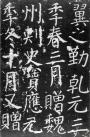 翼之勤乾元三
秊春三月贈魏
州刺史寶應元
秊冬十月又贈